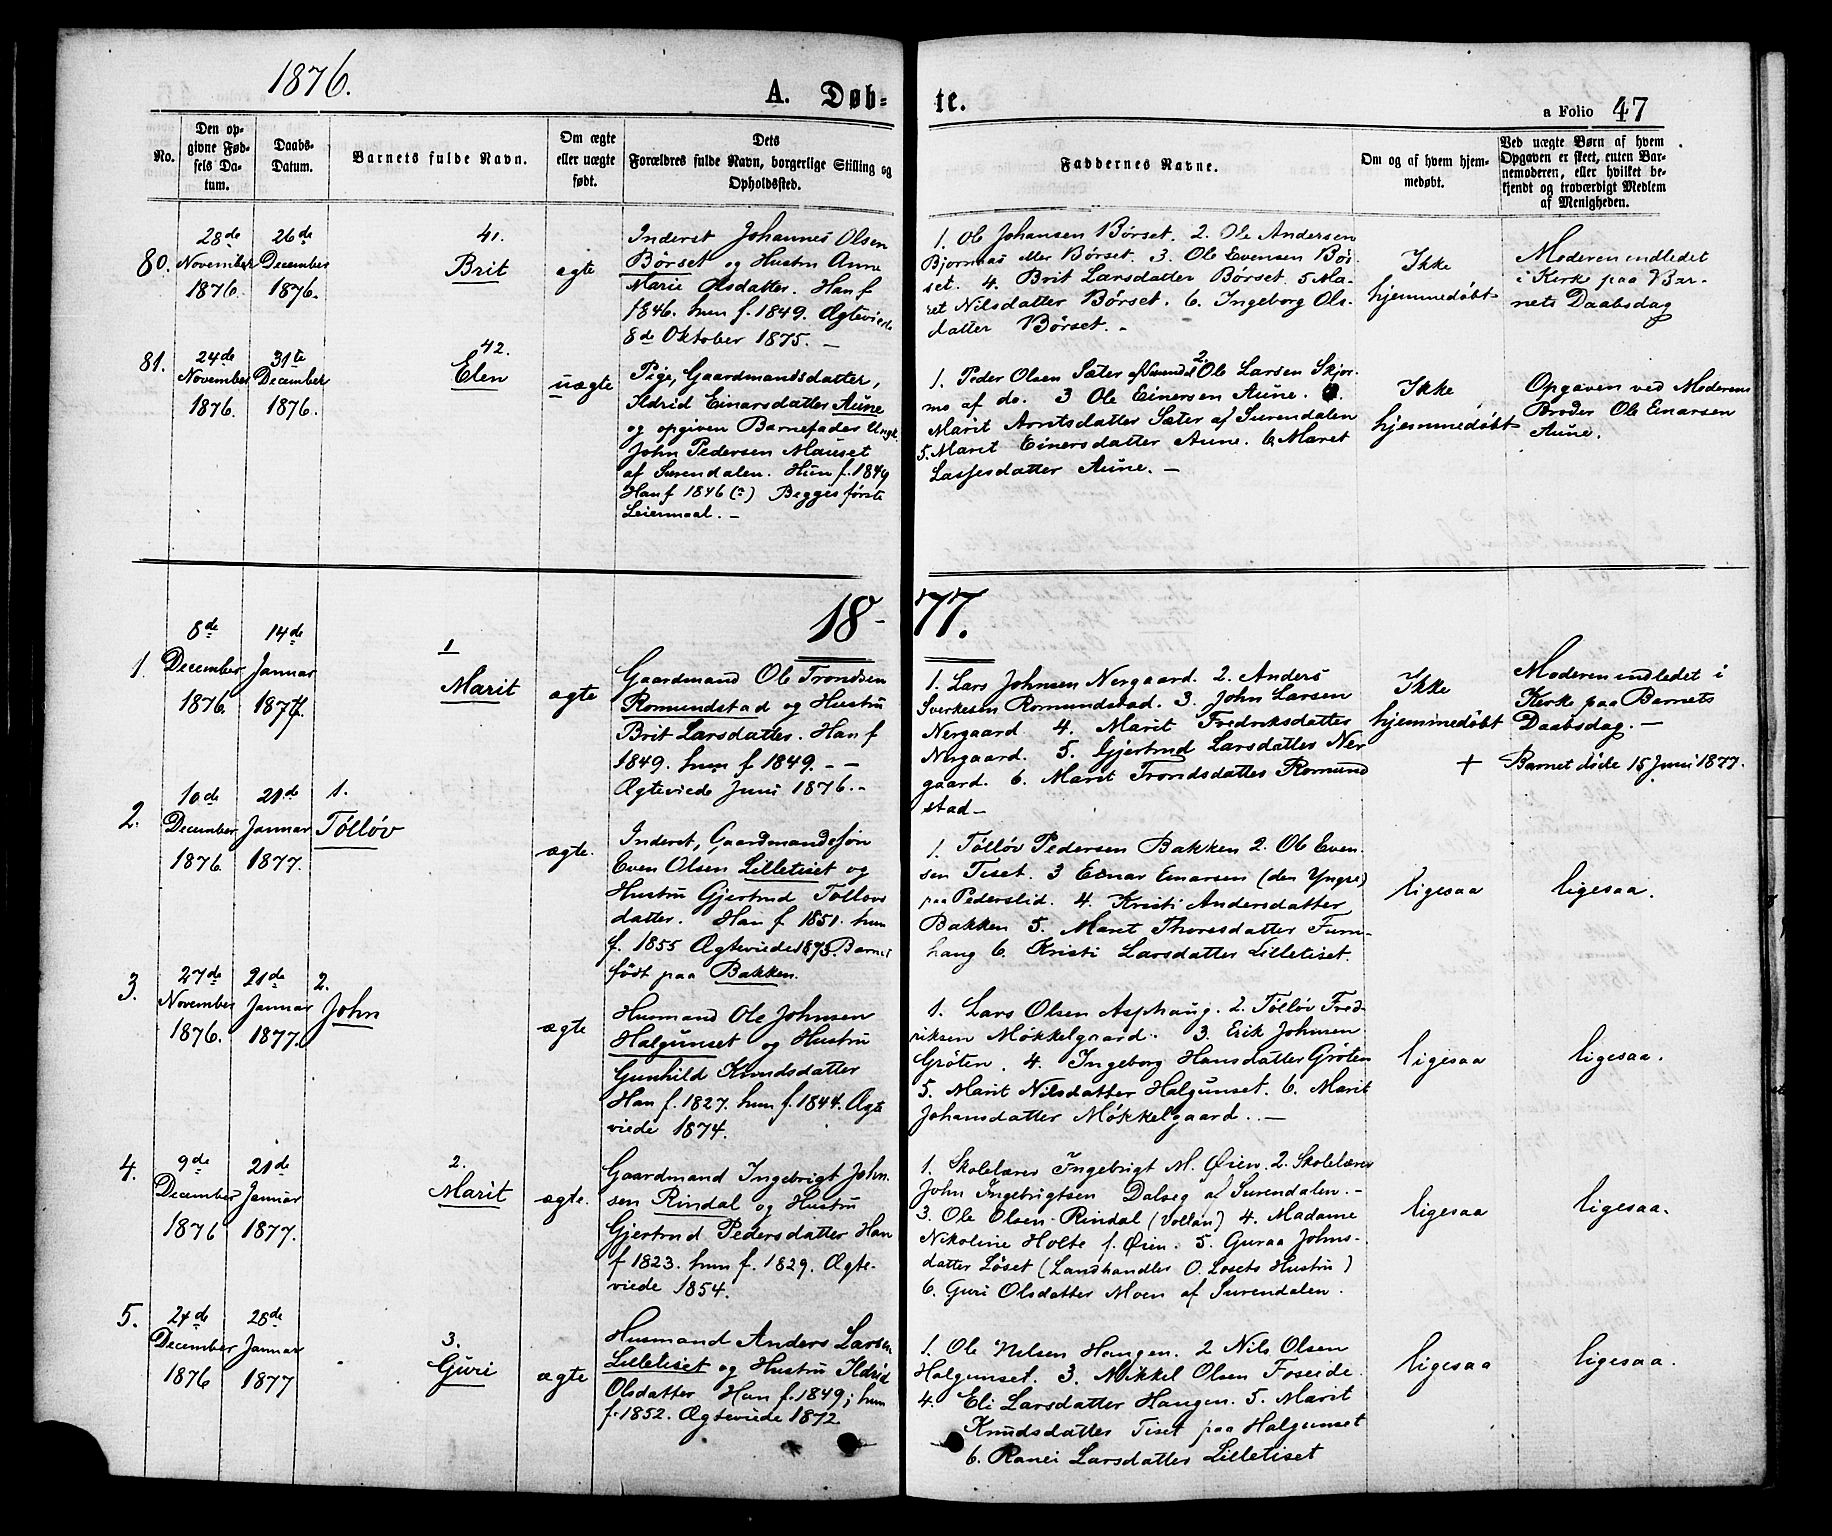 1876.
A. Døb-
te.
a Folio 47
No.
Den op-
givne Fød-
sels Da-
tum.
Daabs-
Datum.
Barnets fulde Navn.
Om ægte
eller uægte
født.
Dets
Forældres fulde Navn, borgerlige Stilling og
Opholdssted.
Faddernes Navne.
Om og af hvem hjem-
medøbt.
Ved uægte Børn af hvem
Opgaven er skeet, enten Bar-
nemoderen, eller hvilket be-
kjendt og troværdigt Medlem
af Menigheden.
80.
28de
November
1876.
26de
December
1876.
41.
Brit
ægte
Inderst Johannes Olsen
Børset og Hustru Anne
Marie Olsdatter. Han f
1846. hun f. 1849. Ægteviede
8de Oktober 1875. —
1. Ole Johansen Børset. 2. Ole Andersen
Bjørnaas eller Børset. 3. Ole Evensen Bør-
set. 4. Brit Larsdatter Børset. 5 Ma-
ret Nilsdatter Børset. 6. Ingeborg Ols-
datter Børset. —
Ikke
hjemmedøbt
Moderen indledet
i Kirke paa Bar-
nets Daabsdag
81.
24de
November
1876.
31te
December
1876.
42.
Elen
uægte
Pige, Gaardmandsdatter,
Ildrid Einarsdatter Aune
og opgiven Barnefader Ungk.
John Pedersen Mauset
af Surendalen. Hun f. 1849
Han f 1846 (?) Begges første
Leiermaal. —
1. Peder Olsen Sæter af Surendal 2. Ole Larsen Skjør-
mo af do. 3 Ole Einersen Aune. 4.
Marit Arntsdatter Sæter af Surendalen
5. Marit Einersdatter Aune. 6. Maret
Lassesdatter Aune. —
Ikke
hjemmedøbt
Opgaven ved Moderens
Broder Ole Einarsen
Aune.
18-77.
1.
8de
December
1876.
14de
Januar
1877.
1
Marit
ægte
Gaardmand Ole Trondsen
Romundstad og Hustru
Brit Larsdatter. Han f
1849. hun f 1849. - -
Ægteviede Juni 1876. -
1. Lars Johnsen Nergaard. 2. Anders
Sverkesen Romundstad. 3. John Larsen
Nergaard. 4. Marit Fredriksdatter
Nergaard. 5. Gjertrud Larsdatter Ner
gaard. 6. Marit Trondsdatter Romund
stad —
Ikke
hjemmedøbt
+
Moderen indledet i
Kirke paa Barnets
Daabsdag. —
Barnet døde 15 Juni 1877.
2.
10de
December
1876.
21de
Januar
1877.
1.
Tølløv
ægte.
Inderst, Gaardmandssøn
Even Olsen Lilletiset og
Hustru Gjertrud Tølløvs
datter. Han f 1851. hun
f. 1855 Ægteviede 1875. Barnet
født paa Bakken.
1. Tølløv Pedersen Bakken 2. Ole Even-
sen Tiset. 3 Einar Einarsen (den Yngre)
paa Pederslid. 4. Kristi Andersdatter
Bakken 5. Maret Thoresdatter Furu-
haug 6. Kristi Larsdatter Lilletiset.
ligesaa
ligesaa.
3.
27de
November
1876.
21de
Januar
1877.
2.
John
ægte
Husmand Ole Johnsen
Halgunset og Hustru
Gunhild Knudsdatter
Han f. 1827. hun f. 1844. Ægte
viede 1874.
1. Lars Olsen Asphaug. 2 Tølløv Fred-
riksen Møkkelgaard. 3. Erik Johnsen
Grøten. 4. Ingeborg Hansdatter Grøten
5. Marit Nilsdatter Halgunset. 6. Marit
Johansdatter Møkkelgaard. —
ligesaa
ligesaa.
4.
9de
December
1876
21de
Januar
1877.
2.
Marit
ægte.
Gaardmand Ingebrigt John-
sen Rindal og Hustru
Gjertrud Pedersdatter Han
f 1823. hun f. 1829. Ægte-
viede 1854.
1. Skolelærer Ingebrigt M. Øien. 2. Skolelærer
John Ingebrigtsen Dalseg af Surendalen. -
3. Ole Olsen Rindal (Vollan) 4. Madame
Nikoline Holte f. Øien. 5. Guraa Johns-
datter Løset (Landhandler O. Løsets Hustru)
6. Guri Olsdatter Moen af Surendalen.
ligesaa
ligesaa.
5.
24de
December
1876
28de
Januar
1877
3.
Guri
ægte
Husmand Anders Larsen
Lilletiset og Hustru Ildrid
Olsdatter Han f. 1849; hun
f. 1852. Ægteviede 1872.
1. Ole Nilsen Haugen. 2 Nils Olsen
Halgunset. 3. Mikkel Olsen Foseide.
4. Eli Larsdatter Haugen. 5. Marit
Knudsdatter Tiset paa Halgunset
6. Ranei Larsdatter Lilletiset
ligesaa
ligesaa.